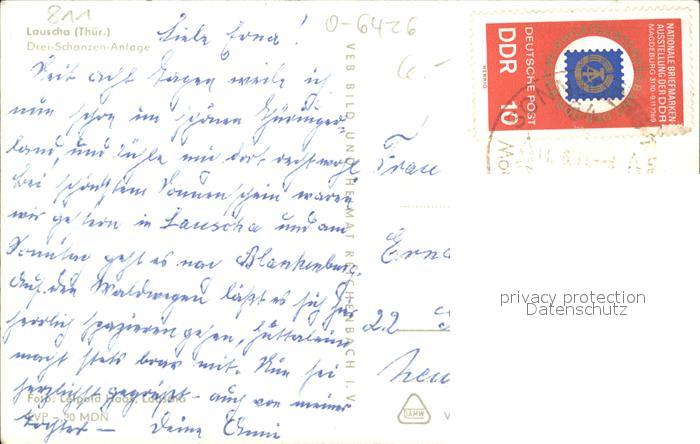 811
Lauscha (Thür.)
Drei-Schanzen-Anlage
O-6426
Liebe Erna!
Seit acht Tagen weile ich
nun schon im schönen Thüringer-
land, und fühle mich dort recht wohl.
Bei schönstem Sonnenschein waren
wir gestern in Lauscha und am
Sonntag geht es nach Blankenburg.
Auf den Waldwegen läßt es sich
herrlich spazieren gehen,
macht stets brav mit. Nun sei
herzlichst gegrüßt - auch von meiner
Tochter - Deine Änni
Foto: Leopold Haas, Lauscha
EVP - 20 MDN
VEB BILD UND HEIMAT REICHENBACH I. V.
DAMW
V
6-
Frau
Erna
22
Neu
DDR
DEUTSCHE POST
10
HERBIG
NATIONALE BRIEFMARKEN-
AUSSTELLUNG DER DDR
MAGDEBURG 31.10.-9.11.1969
privacy protection
Datenschutz